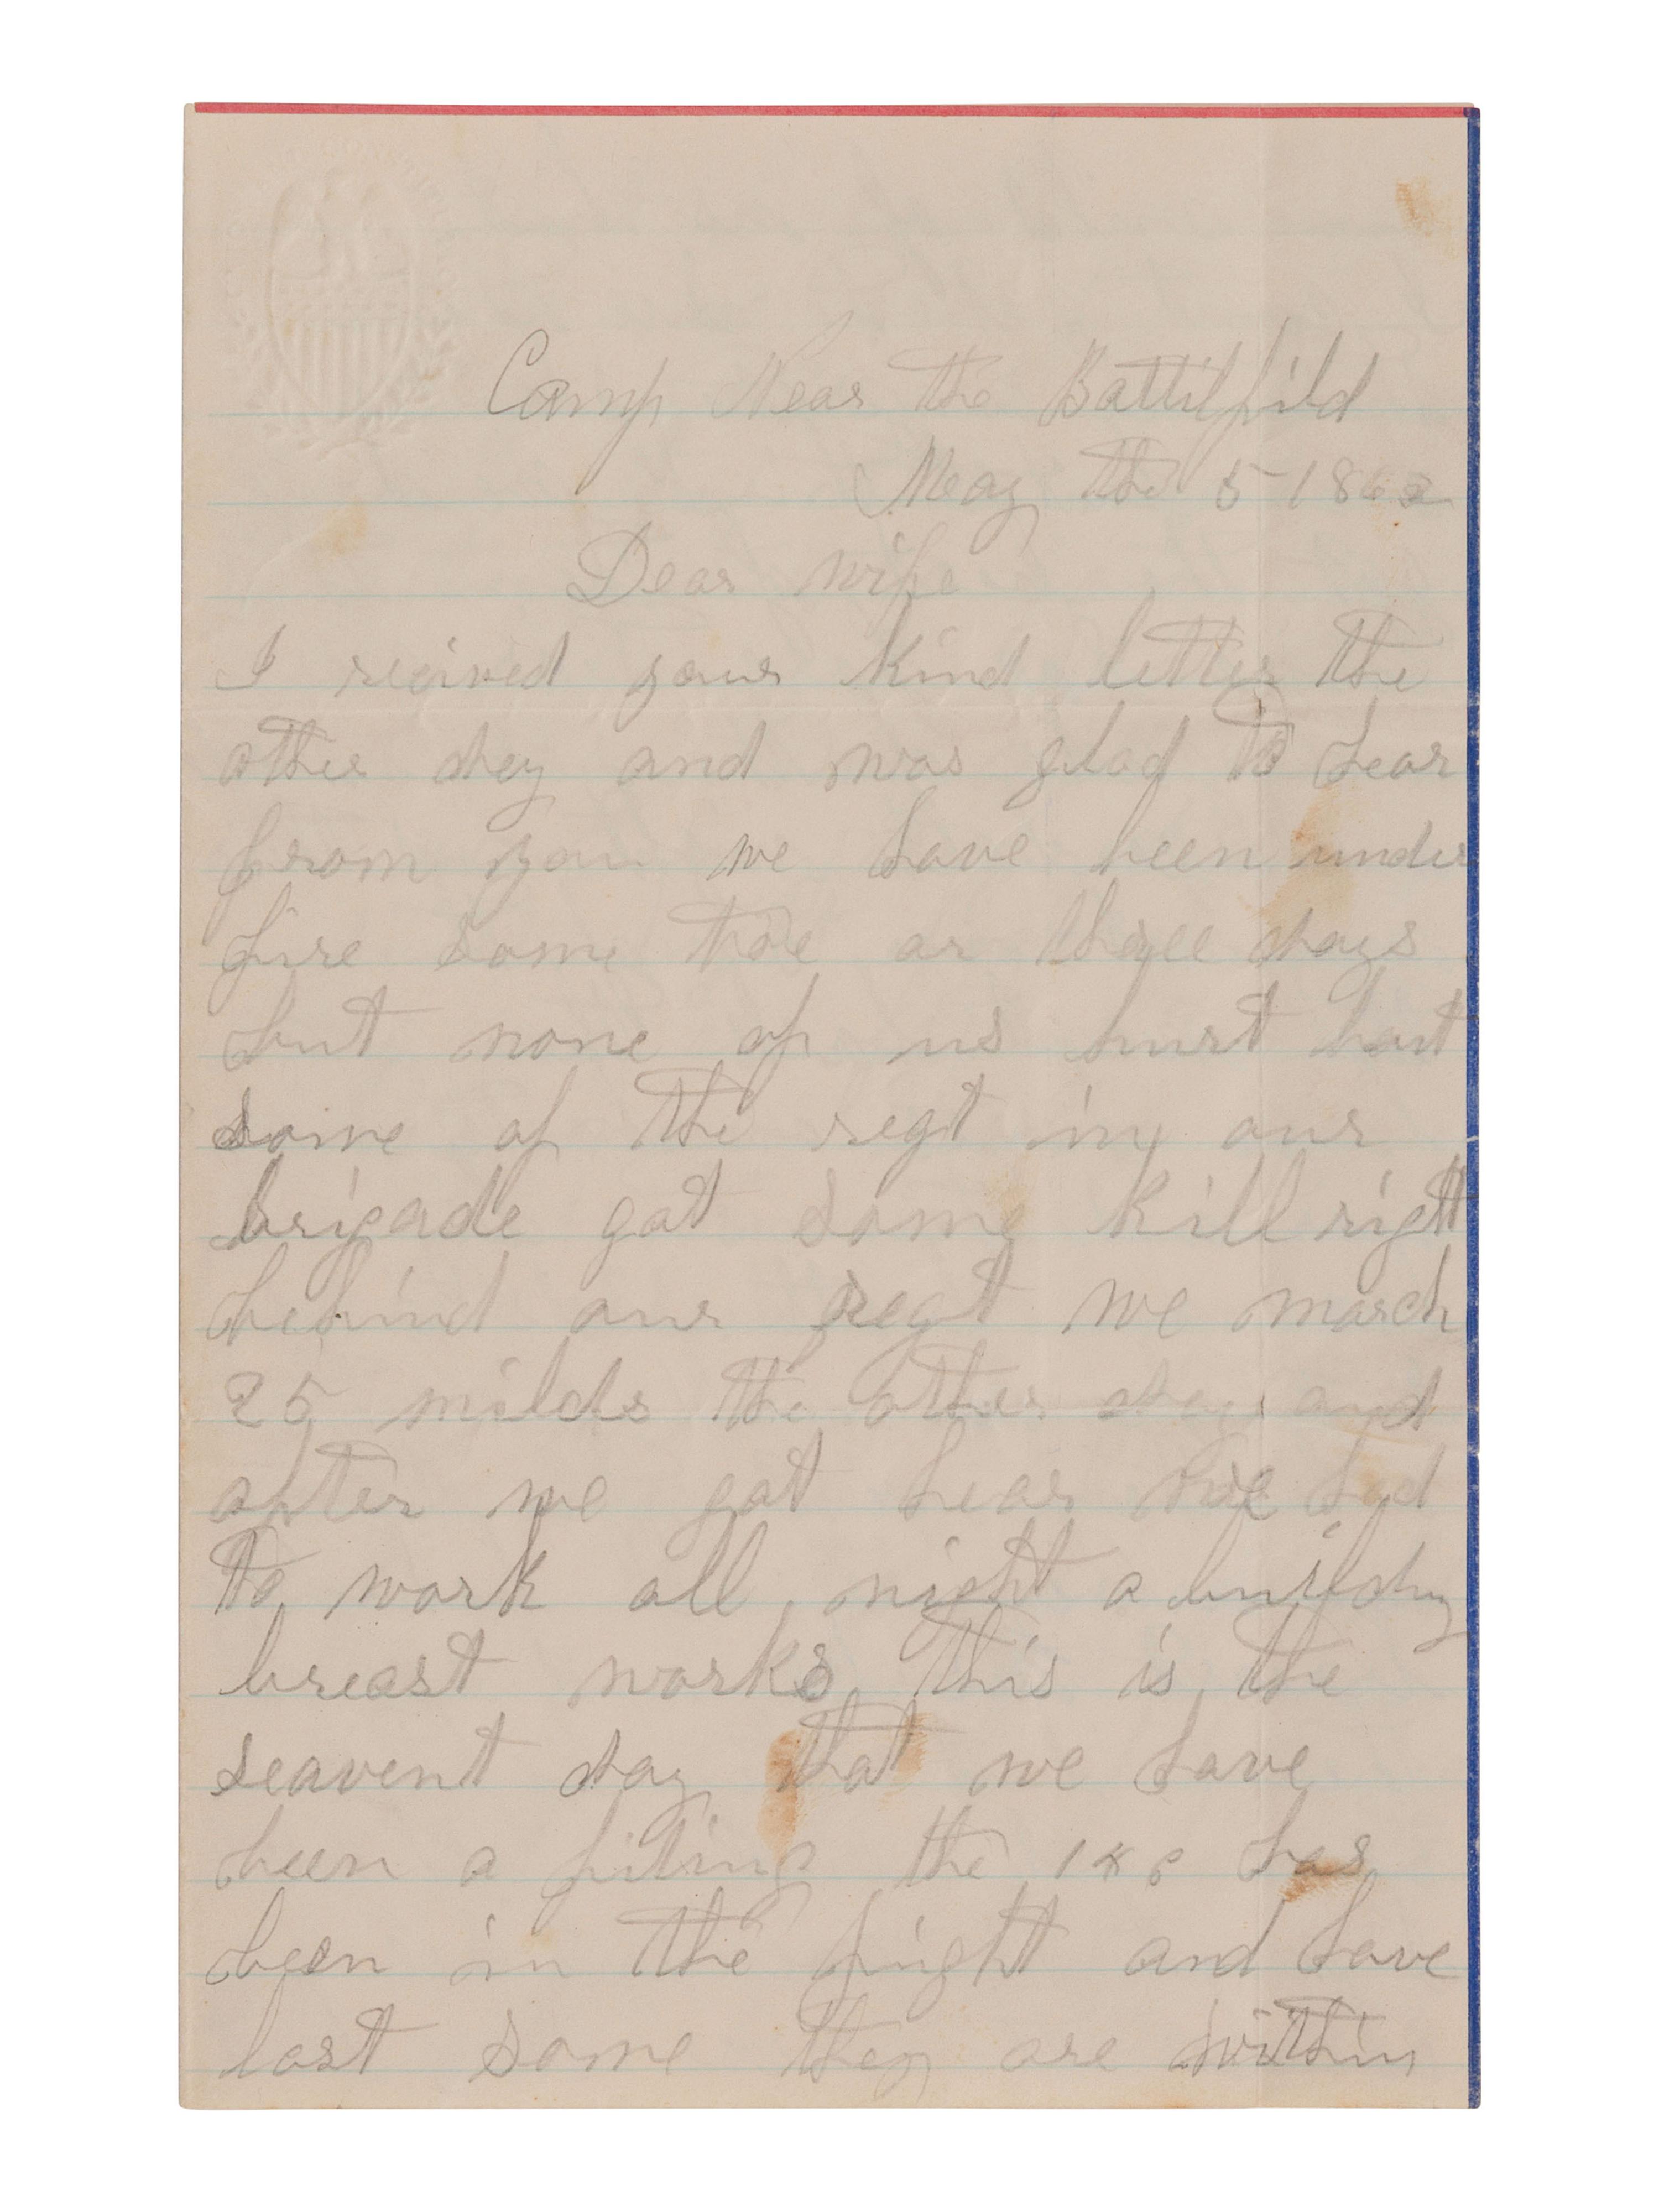 Camp Near the Battilfild
May the 5 1863
Dear wife
I recived your kind letter the
other day and was glad to hear
from you we have been under
fire some twoe or three days
but none of us hurt but
some of the regt in our
brigade got some kill right
behind our regt we march
25 milds the other day and
after we got hear we had
to work all night a building
breast works this is the
seavent day that we have
been a fiting the has
been in the fright and have
lost some they are within